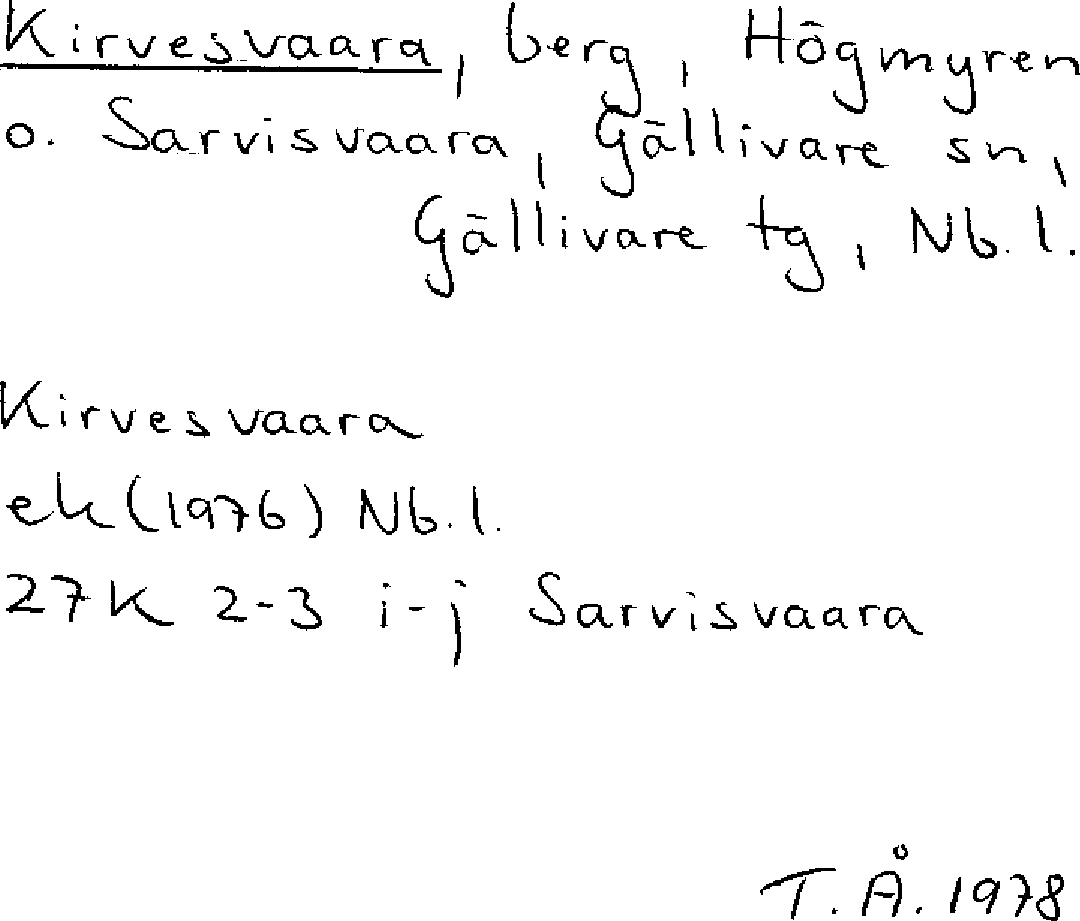 Kirvesvaara, berg, Högmyren
o. Sarvisvaara, Gällivare sn,
Gällivare tg, Nb. l.
Kirvesvaara
ek (1976) Nb. l.
27K 2-3 i-j Sarvisvaara
T. Å. 1978